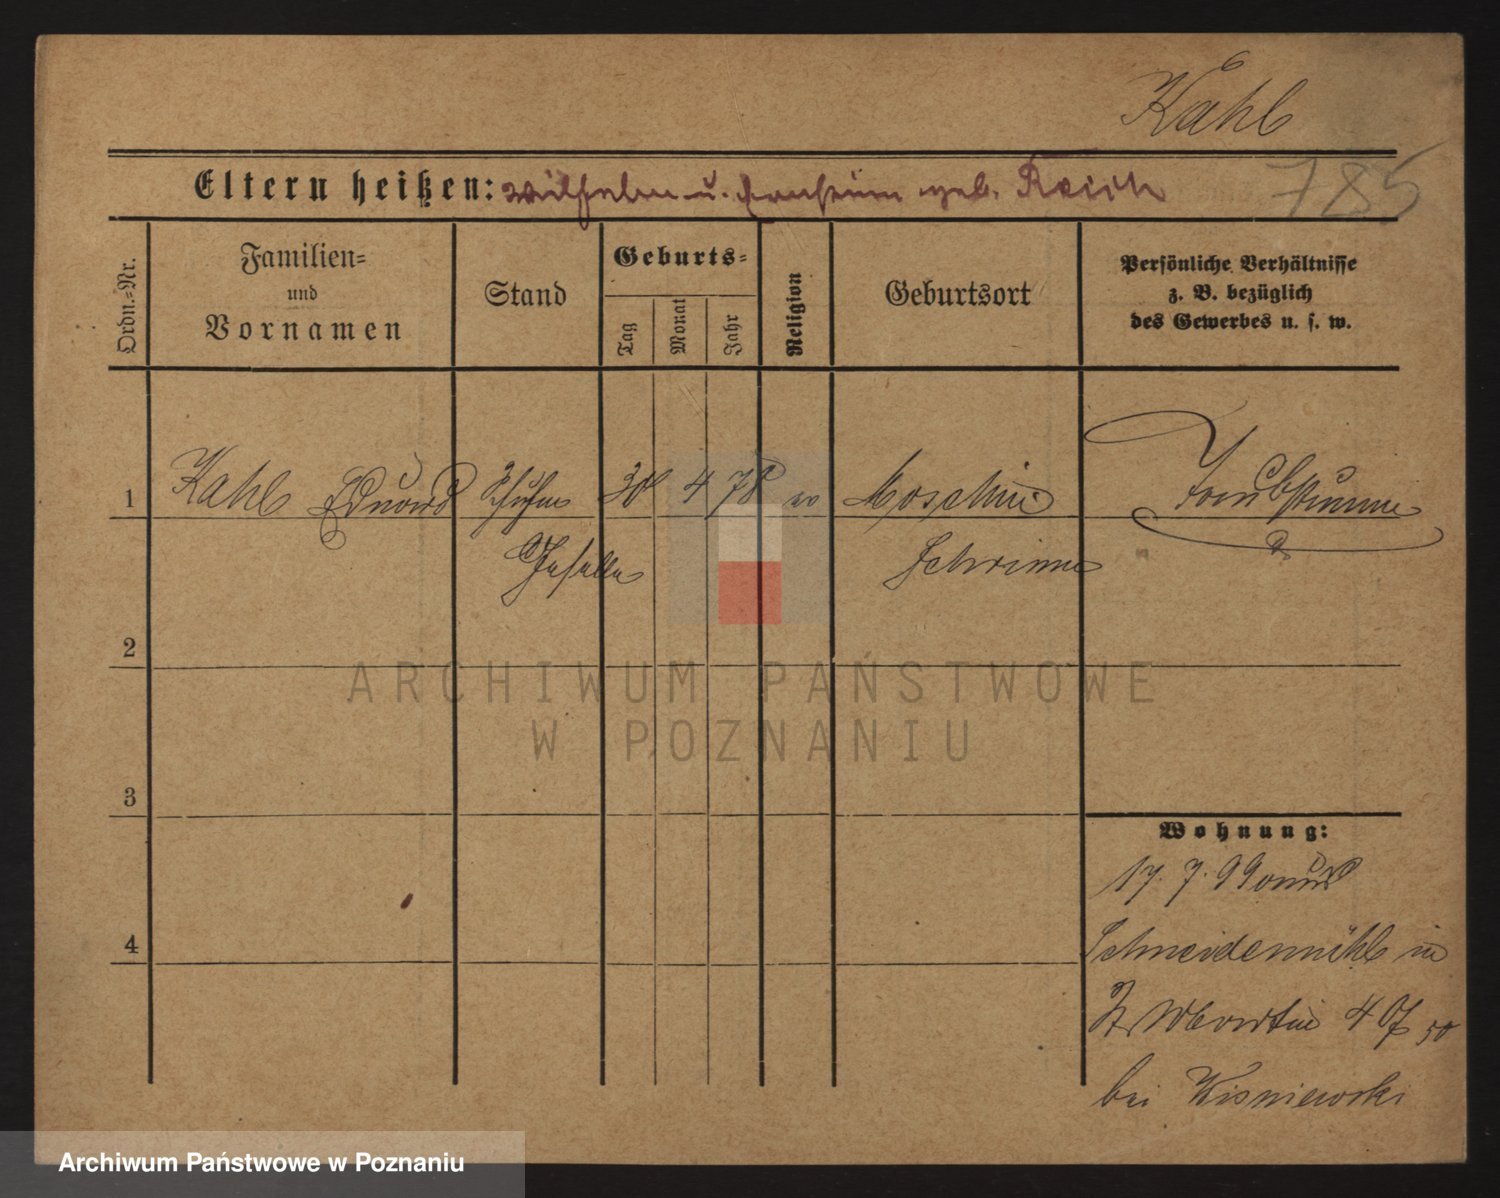 Kahl
Eltern heißen: Wilhelm u. geb. Reich
785
Ordn.=Nr.
Familien=
und
Vornamen
Stand
Geburts=
Tag
Monat
Jahr
Religion
Geburtsort
Persönliche Verhältnisse
z. B. bezüglich
des Gewerbes u. s. w.
1
Kahl Eduard
30 4 78
Moschin
Taubstumm
Geselle
Schrimm
2
ARCHIWUM PAŃSTWOWE
W POZNANIU
3
Wohnung:
17. 7. 99
Schneidemühl in
St Martin 4
bei Wisniewski
4
Archiwum Państwowe w Poznaniu